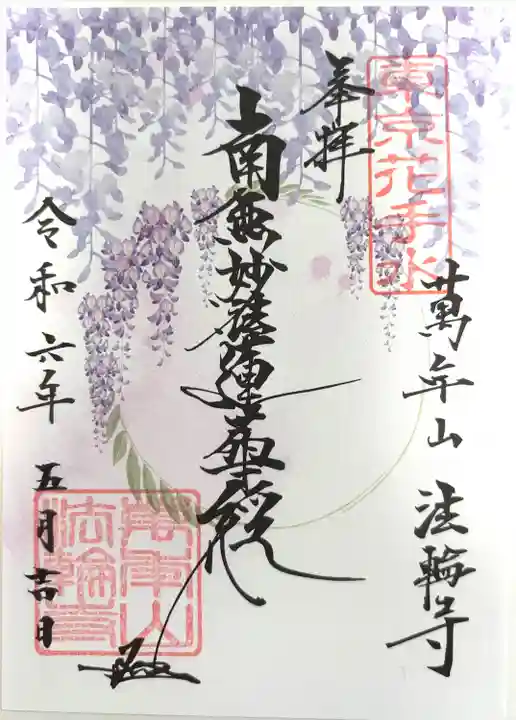 東京花手水
萬年山 法輪寺
奉拝
南無妙法蓮華経
令和六年 五月吉日
萬年山
法輪寺